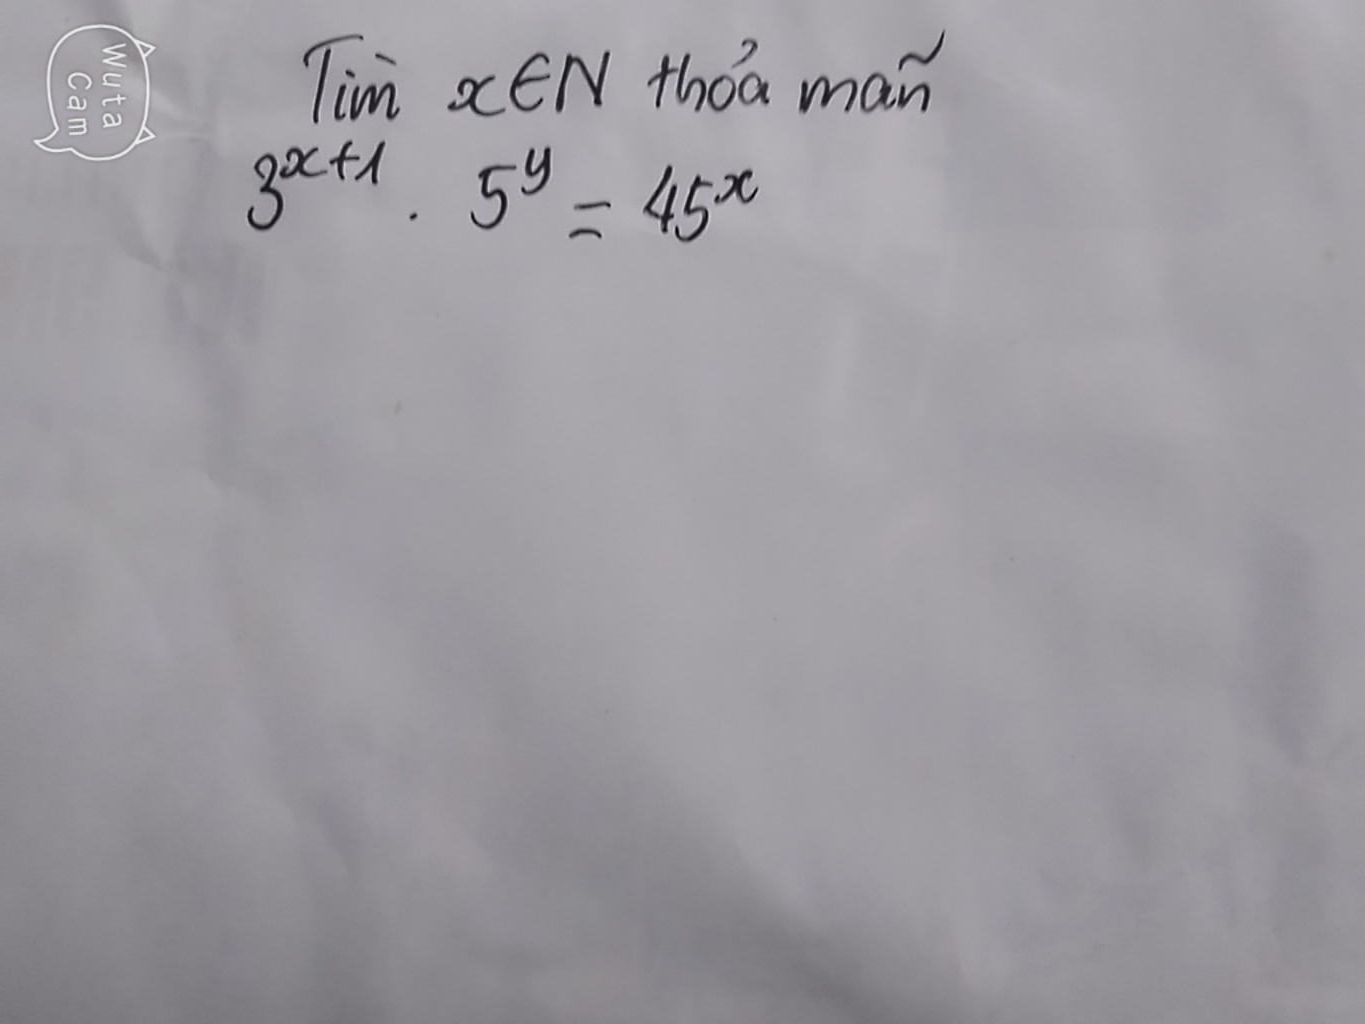 Wuta
Cam
Tìm x∈N thỏa mãn
3^{x+1} . 5^y = 45^x